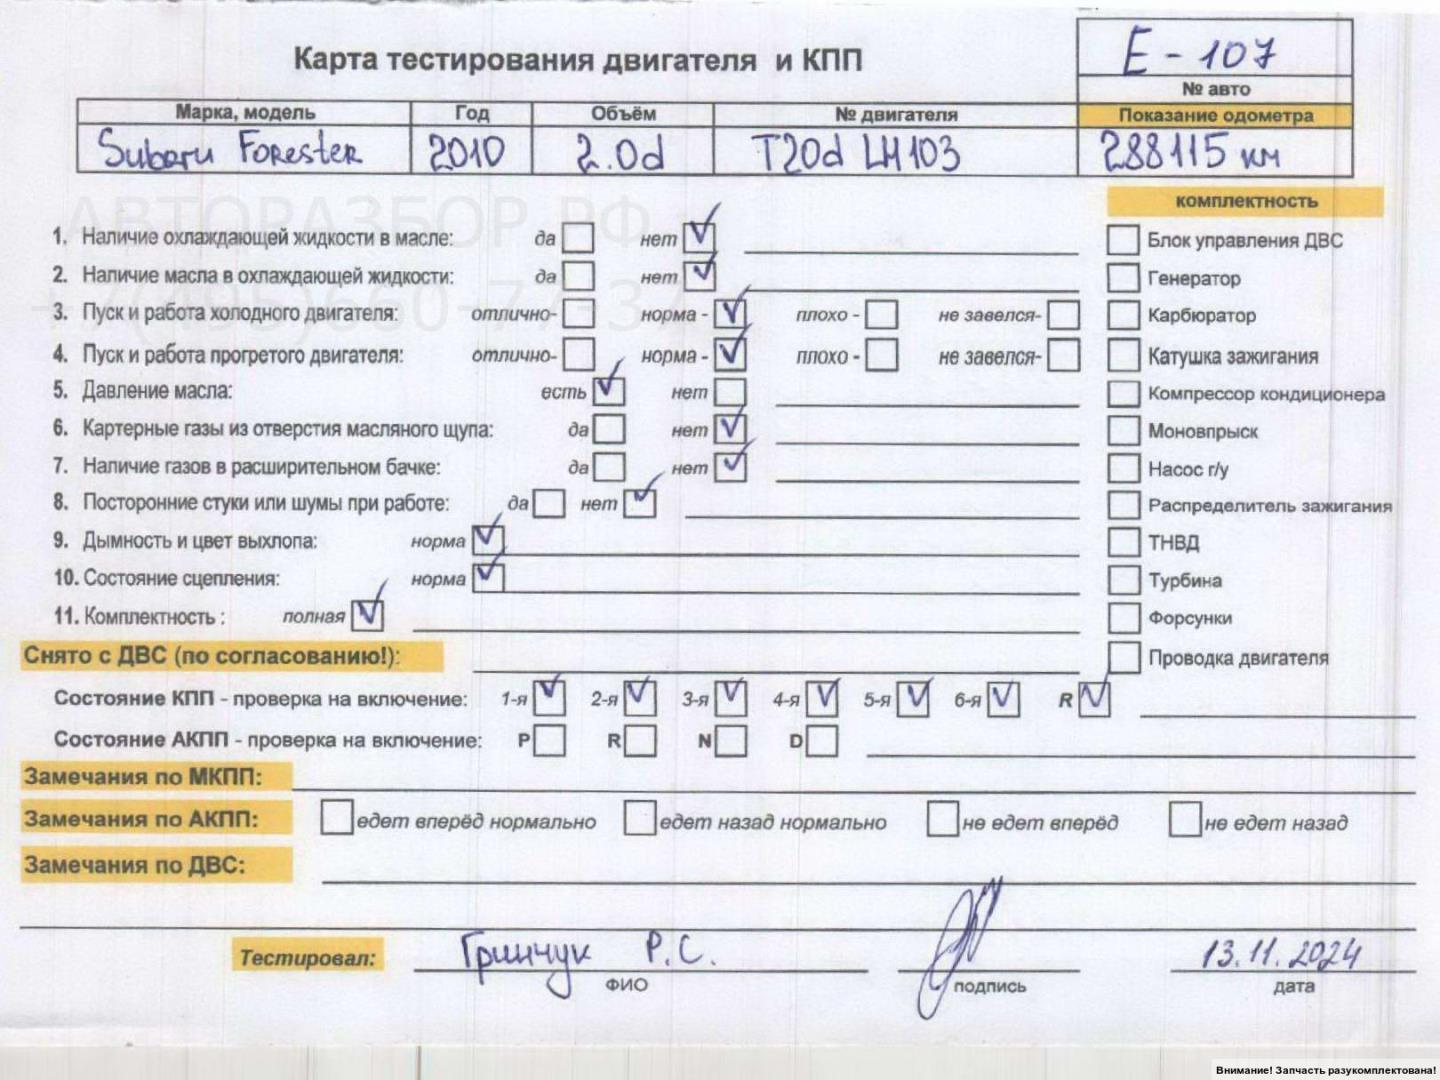 Карта тестирования двигателя и КПП
E-107
№ авто
Марка, модель Год Объём № двигателя Показание одометра
Subaru Forester 2010 2.0d T20d LH103 288115 км
АВТОРАЗБОР.РФ
+7(495)660-77-37
комплектность
1. Наличие охлаждающей жидкости в масле: да нет Блок управления ДВС
2. Наличие масла в охлаждающей жидкости: да нет Генератор
3. Пуск и работа холодного двигателя: отлично- норма - плохо - не завелся- Карбюратор
4. Пуск и работа прогретого двигателя: отлично- норма - плохо - не завелся- Катушка зажигания
5. Давление масла: есть нет Компрессор кондиционера
6. Картерные газы из отверстия масляного щупа: да нет Моновпрыск
7. Наличие газов в расширительном бачке: да нет Насос г/у
8. Посторонние стуки или шумы при работе: да нет Распределитель зажигания
9. Дымность и цвет выхлопа: норма ТНВД
10. Состояние сцепления: норма Турбина
11. Комплектность : полная Форсунки
Снято с ДВС (по согласованию!): Проводка двигателя
Состояние КПП - проверка на включение: 1-я 2-я 3-я 4-я 5-я 6-я R
Состояние АКПП - проверка на включение: P R N D
Замечания по МКПП:
Замечания по АКПП: едет вперёд нормально едет назад нормально не едет вперёд не едет назад
Замечания по ДВС:
Тестировал: Гринчук Р.С. 13.11.2024
ФИО подпись дата
Внимание! Запчасть разукомплектована!